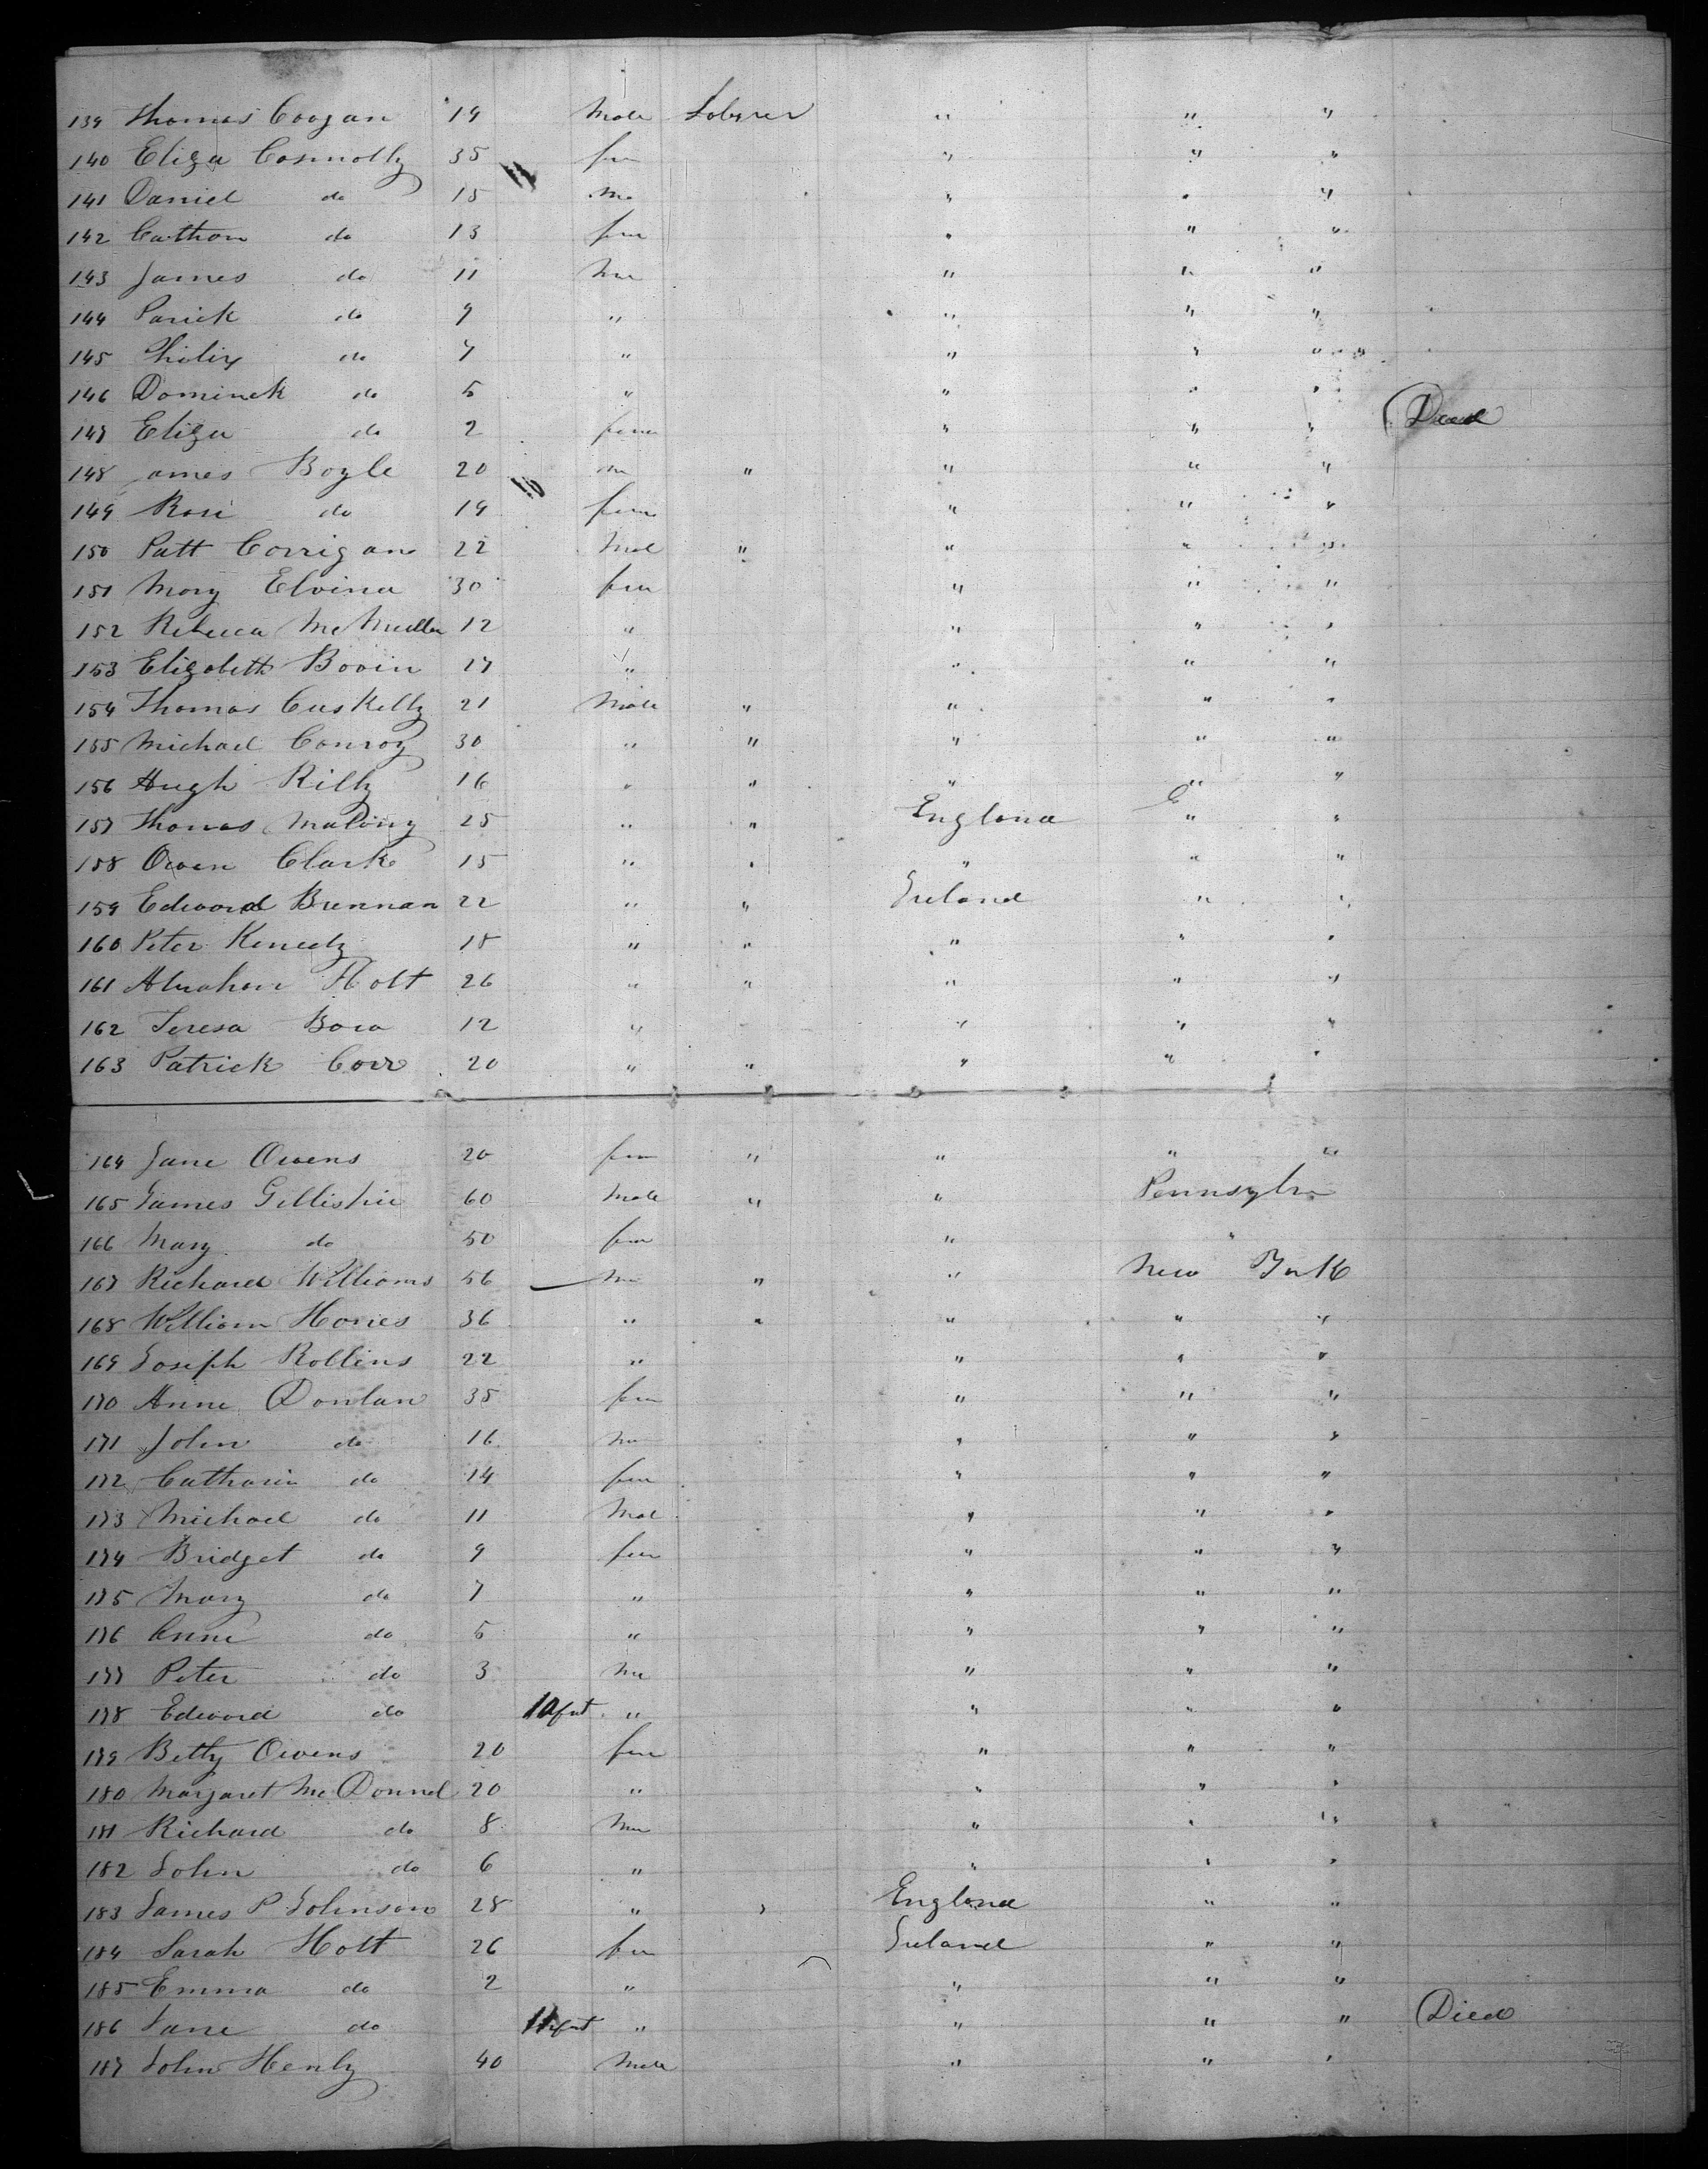 139 Thomas Coogan 19 Male Laborer " " "
140 Eliza Connolly 35 fem " " "
141 Daniel do 15 Ma " " "
142 Cathon do 13 fem " " "
143 James do 11 Ma " " "
144 Parick do 9 " " " "
145 Philix do 7 " " " "
146 Dominek do 5 " " " "
147 Eliza do 2 fem " " " Died
148 James Boyle 20 m " " " "
149 Rose do 19 fem " " "
150 Patt Corrigan 22 Mal " " " "
151 Mary Elvina 30 fem " " "
152 Rebecca McMullen 12 " " " "
153 Elizabeth Bovin 17 " " " "
154 Thomas Cuskelly 21 Male " " " "
155 Michael Conroy 30 " " " " "
156 Hugh Rilly 16 " " " " "
157 Thomas Malony 25 " " England " "
158 Owen Clark 15 " " " " "
159 Edward Brennan 22 " " Ireland " "
160 Peter Kenedy 18 " " " " "
161 Abraham Holt 26 " " " " "
162 Teresa 12 " " " "
163 Patrick Corr 20 " " " " "
164 Jane Owens 20 fem " " " "
165 James Gillispie 60 Male " " Pennsylva
166 Mary do 50 fem " "
167 Richard Williams 56 m " " New York
168 William Hories 36 " " " " "
169 Joseph Rollins 22 " " " "
170 Anne Donlan 35 fem " " "
171 John do 16 m " " "
172 Catharin do 14 fem " " "
173 Michael do 11 Mal " " "
174 Bridget do 9 fem " " "
175 Mary do 7 " " " "
176 Anne do 5 " " " "
177 Peter do 3 Ma " " "
178 Edward do Infnt " " " "
179 Betty Owens 20 fem " " "
180 Margaret McDonnel 20 " " " "
181 Richard do 8 Ma " " "
182 John do 6 " " " "
183 James P Johnson 28 " " England " "
184 Sarah Holt 26 fem Ireland " "
185 Emma do 2 " " " "
186 Jane do Infnt " " " " Died
187 John Henly 40 Male " " "